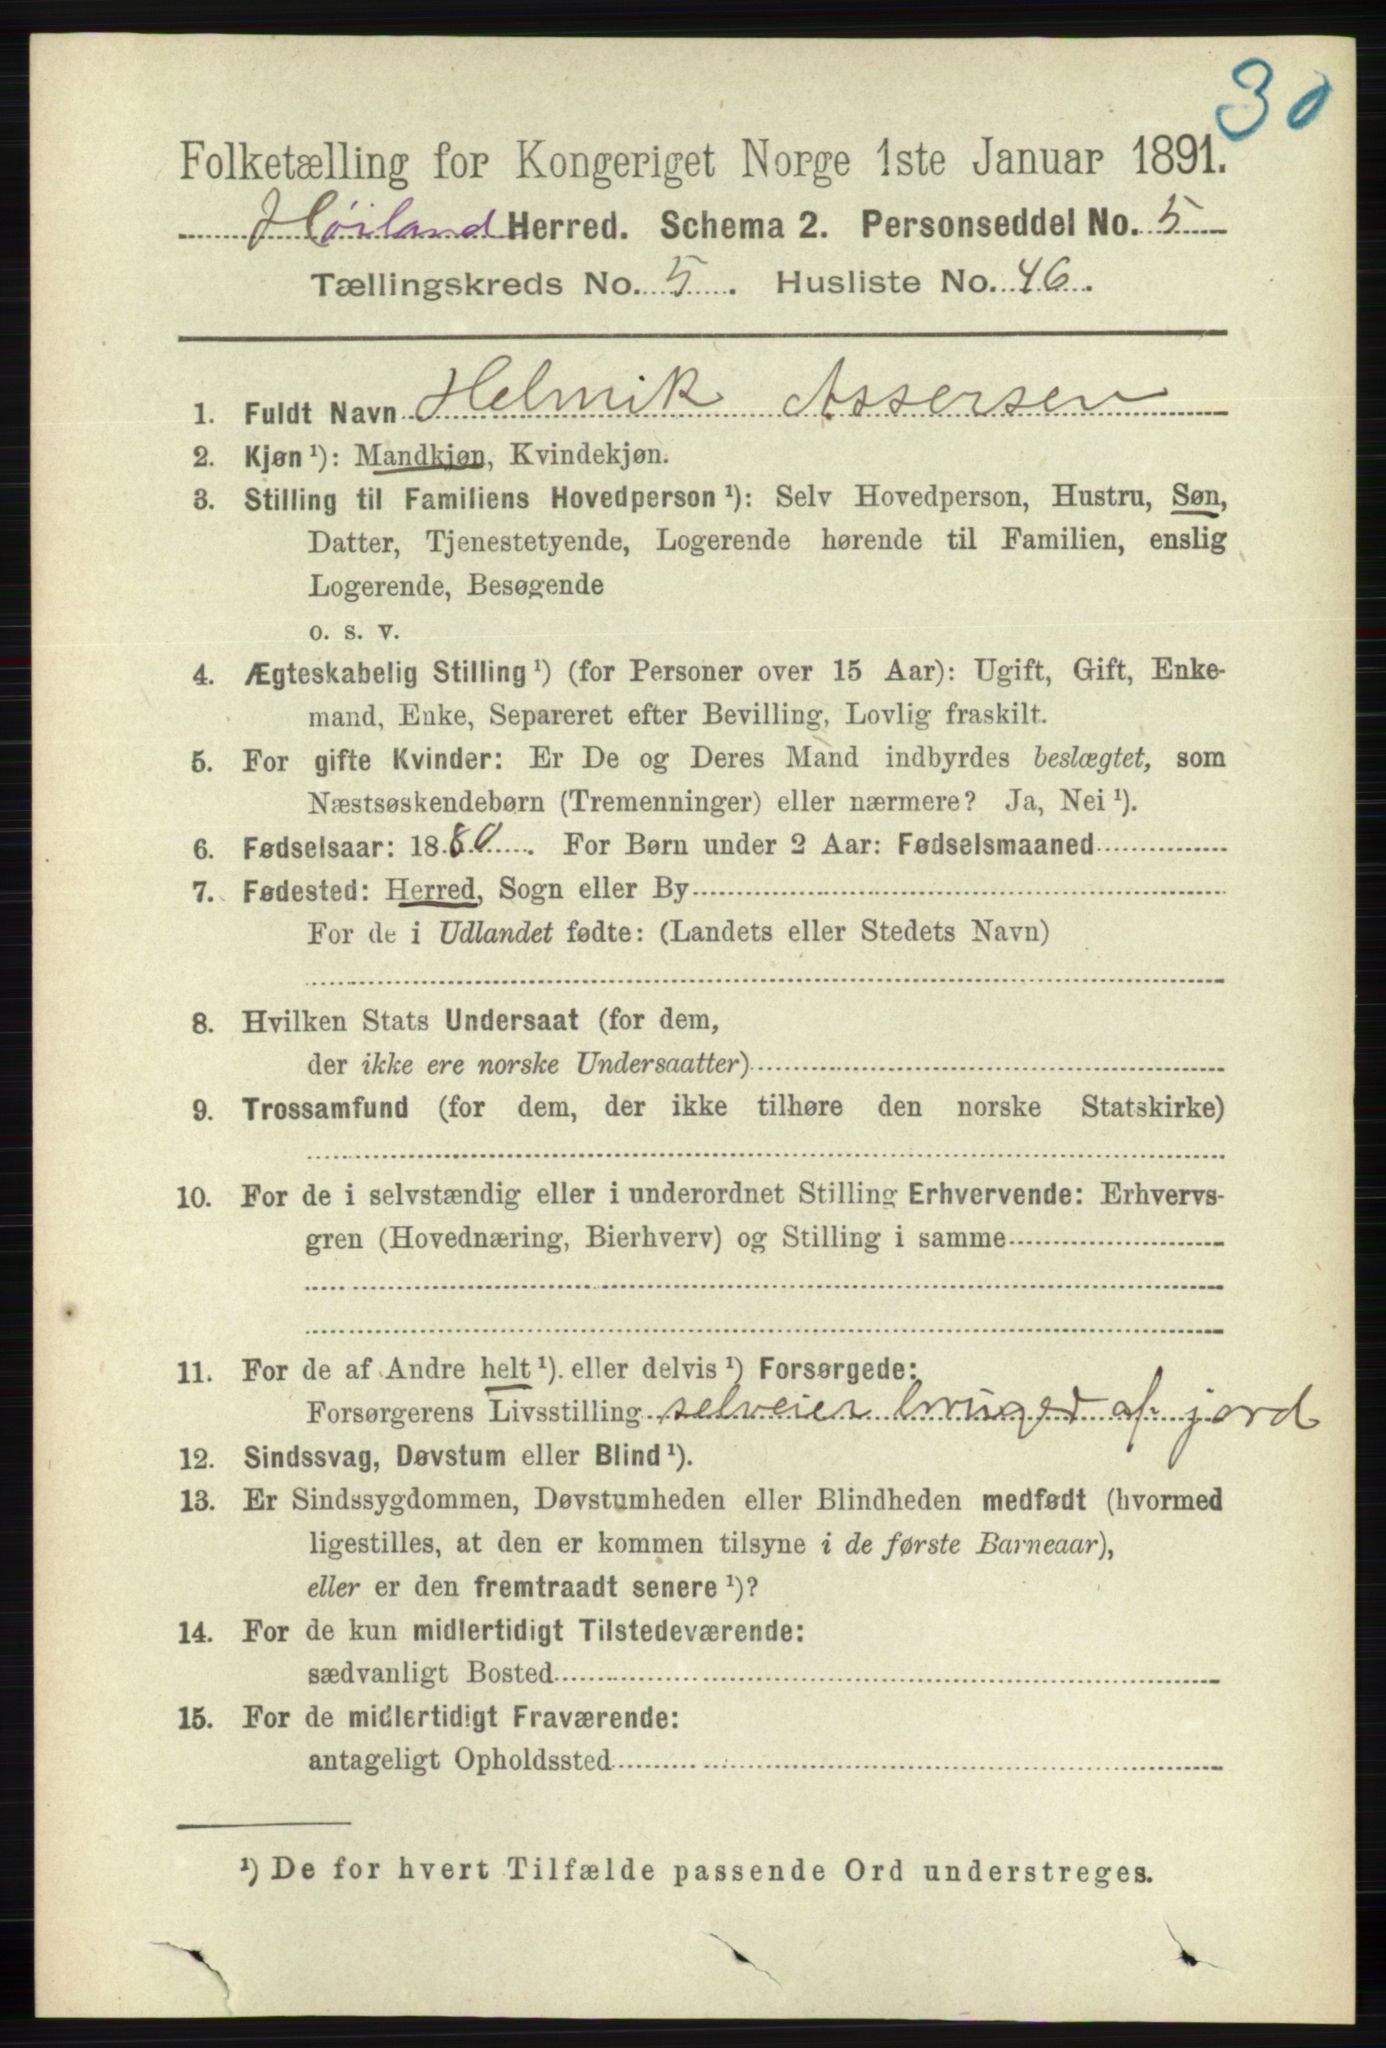 30
Folketælling for Kongeriget Norge 1ste Januar 1891.
Høiland Herred. Schema 2. Personseddel No. 5
Tællingskreds No. 5. Husliste No. 46.
1. Fuldt Navn Helmik Assersen
2. Kjøn ¹): Mandkjøn, Kvindekjøn.
3. Stilling til Familiens Hovedperson ¹): Selv Hovedperson, Hustru, Søn,
Datter, Tjenestetyende, Logerende hørende til Familien, enslig
Logerende, Besøgende
o. s. v.
4. Ægteskabelig Stilling ¹) (for Personer over 15 Aar): Ugift, Gift, Enke-
mand, Enke, Separeret efter Bevilling, Lovlig fraskilt.
5. For gifte Kvinder: Er De og Deres Mand indbyrdes beslægtet, som
Næstsøskendebørn (Tremenninger) eller nærmere? Ja, Nei ¹).
6. Fødselsaar: 1880. For Børn under 2 Aar: Fødselsmaaned
7. Fødested: Herred, Sogn eller By
For de i Udlandet fødte: (Landets eller Stedets Navn)
8. Hvilken Stats Undersaat (for dem,
der ikke ere norske Undersaatter)
9. Trossamfund (for dem, der ikke tilhøre den norske Statskirke)
10. For de i selvstændig eller i underordnet Stilling Erhvervende: Erhvervs-
gren (Hovednæring, Bierhverv) og Stilling i samme
11. For de af Andre helt ¹). eller delvis ¹) Forsørgede:
Forsørgerens Livsstilling selveier bruger af jord
12. Sindssvag, Døvstum eller Blind ¹).
13. Er Sindssygdommen, Døvstumheden eller Blindheden medfødt (hvormed
ligestilles, at den er kommen tilsyne i de første Barneaar),
eller er den fremtraadt senere ¹)?
14. For de kun midlertidigt Tilstedeværende:
sædvanligt Bosted
15. For de midlertidigt Fraværende:
antageligt Opholdssted
¹) De for hvert Tilfælde passende Ord understreges.